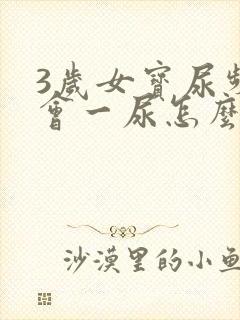 3歲女寶尿
會一尿怎麼
沙漠里的小魚